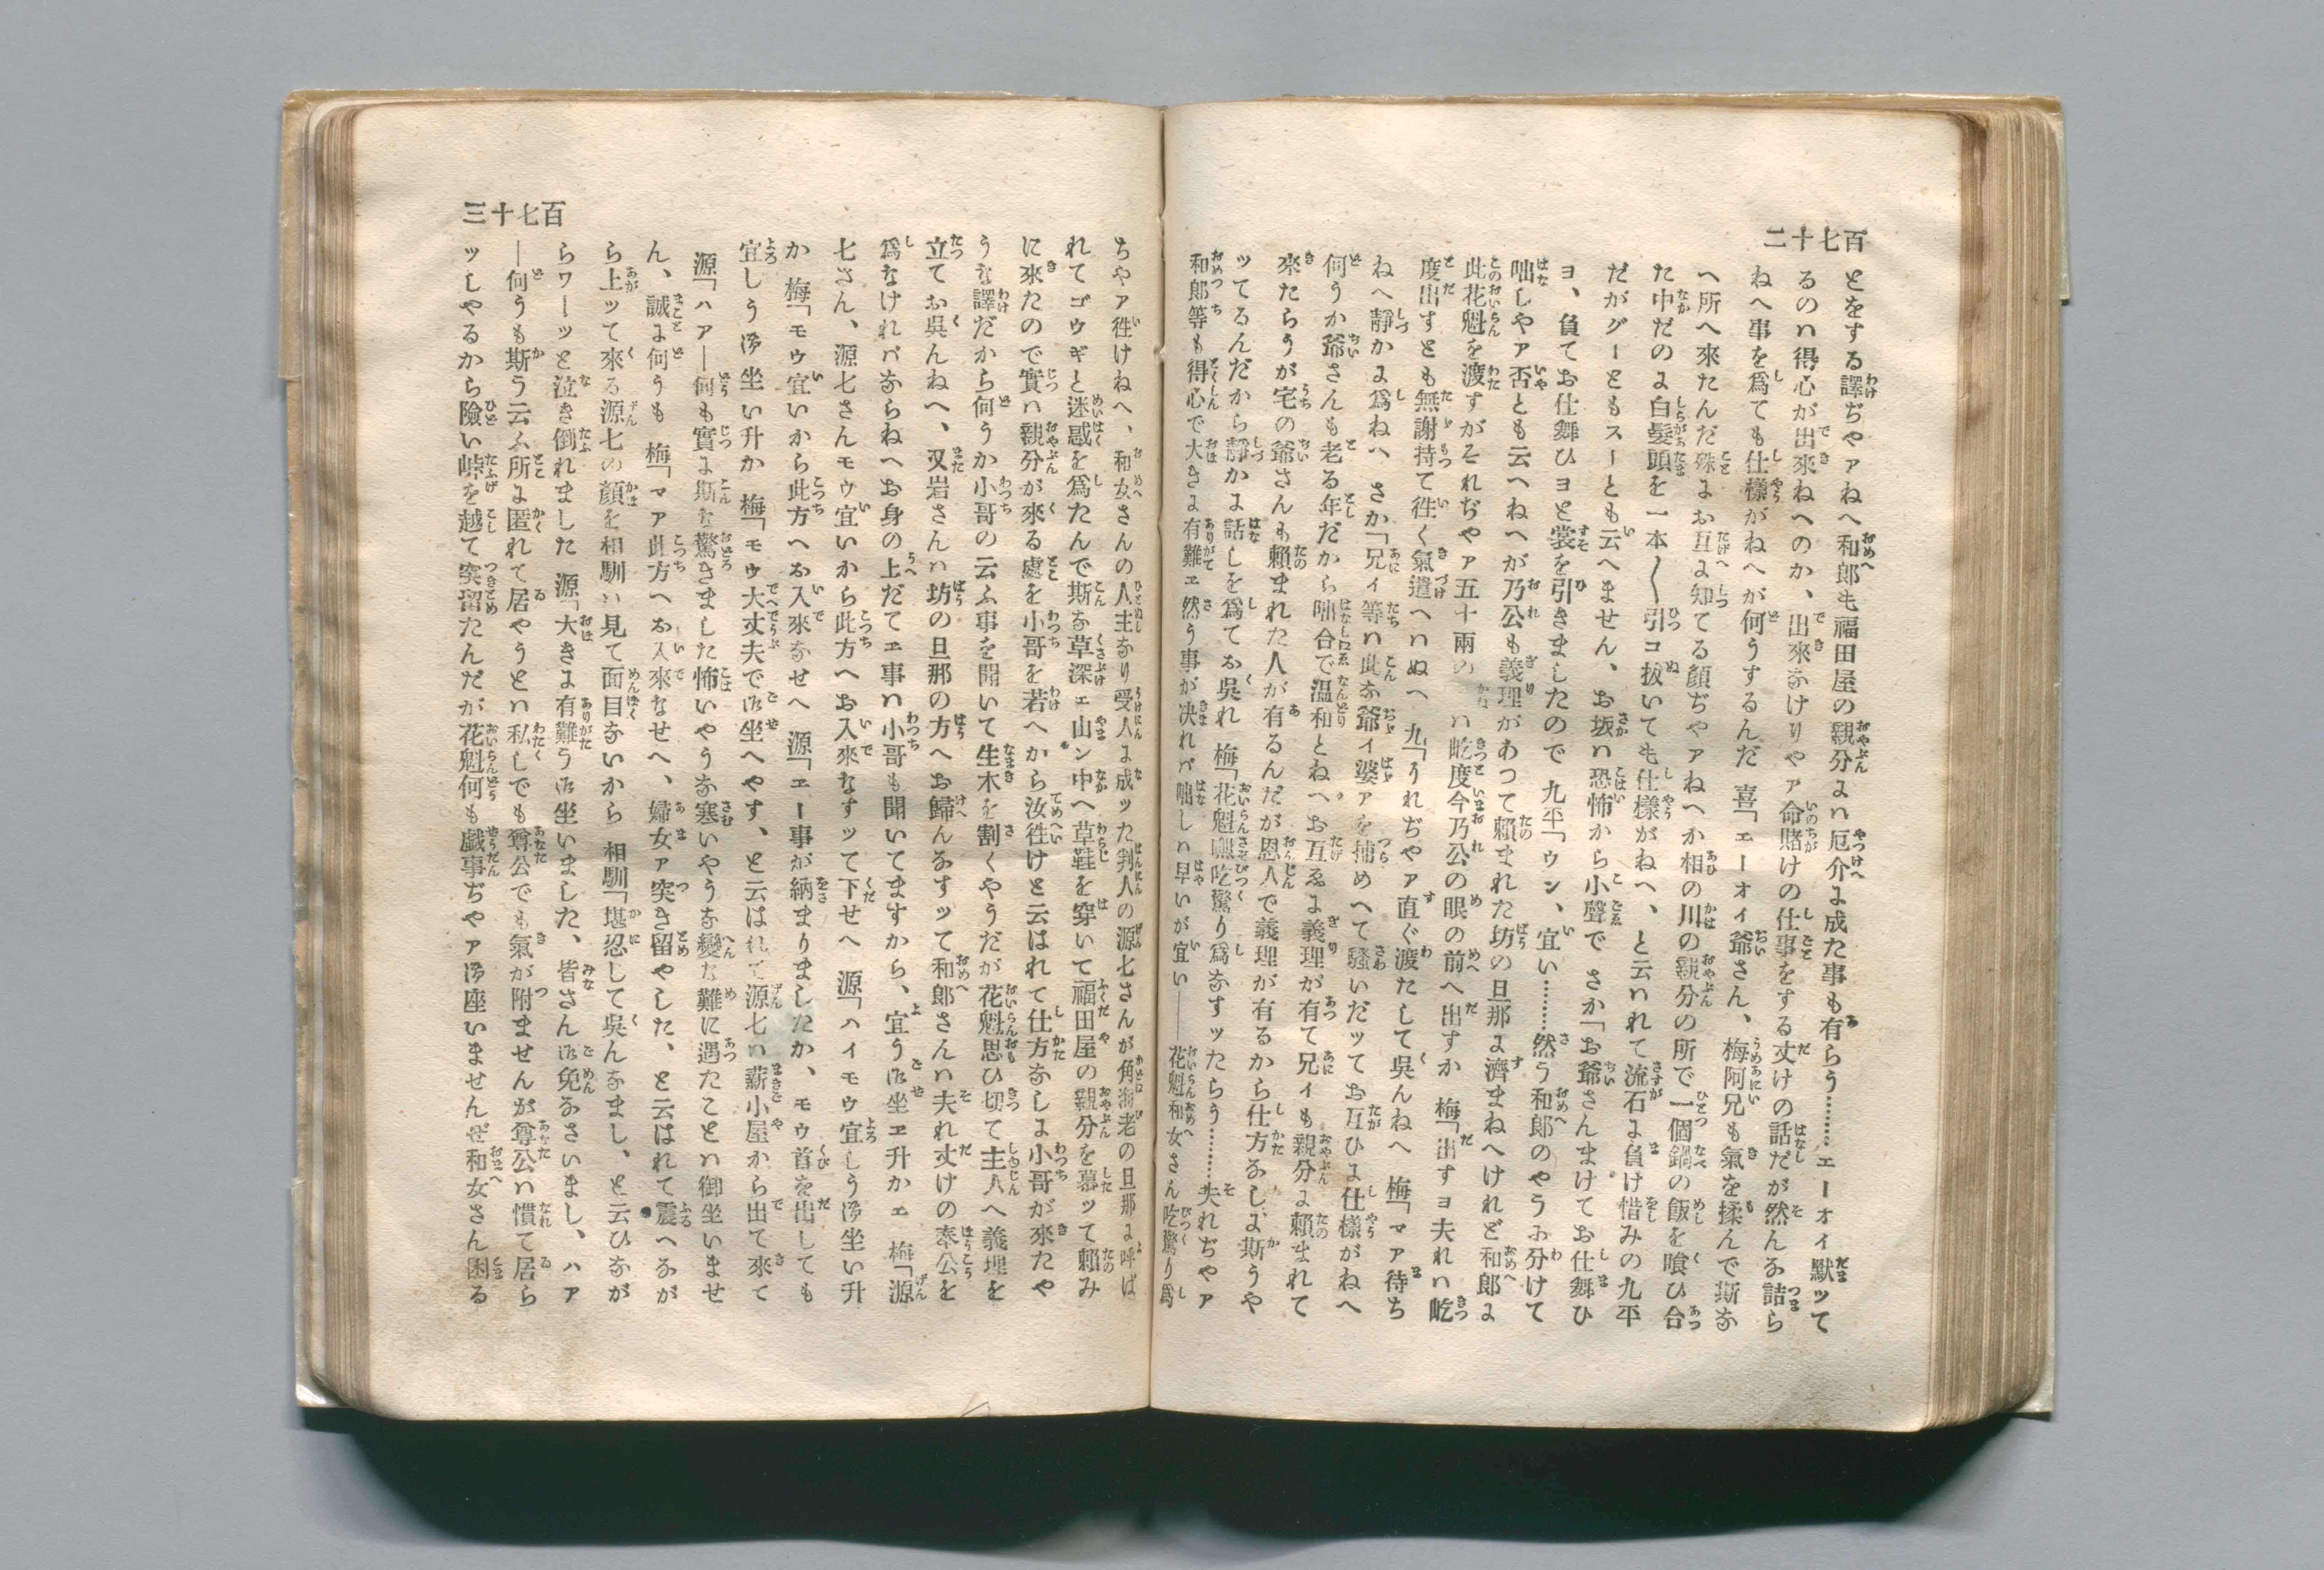 百七十二
とをする譯ぢやァねへ和郎も福田屋の親分よハ厄介よ成た事も有らう………エーオィ默ッて
るのハ得心が出來ねへのか、出來なけりやァ命賭けの仕事をする丈けの話だが然んな詰ら
ねへ事を爲ても仕樣がねへが何うするんだ 喜「エーオィ爺さん、梅阿兄も氣を揉んで斯な
へ所へ來たんだ殊よお互よ知てる顏ぢやァねへか相の川の親分の所で一個鍋の飯を喰ひ合
た中だのよ白髮頭を一本〳〵引コ拔いても仕樣がねへ、と云ハれて流石よ負け惜みの九平
だがグーともスーとも云へません、お坂ハ恐怖から小聲で さか「お爺さんまけてお仕舞ひ
ヨ、負てお仕舞ひヨと裳を引きましたので 九平「ウン、宜い………然う和郎のやうふ分けて
咄しやァ否とも云へねへが乃公も義理があつて賴まれた坊の旦那よ濟まねへけれど和郎よ
此花魁を渡すがそれぢやァ五十兩の ハ屹度今乃公の眼の前へ出すか 梅「出すヨ夫れハ屹
度出すとも無謝持て徃く氣遣へハぬへ 九「うれぢやァ直ぐ渡たして吳んねへ 梅「マァ待ち
ねへ靜かよ爲ねハ さか「兄ィ等ハ此な爺ィ婆ァを捕めへて騷いだッてお互ひよ仕樣がねへ
何うか爺さんも老る年だから咄合で温和とね。お互ゑよ義理が有て兄ィも親分よ賴まれて
來たらうが宅の爺さんも賴まれた人が有るんだが恩人で義理が有るから仕方なしよ斯うや
ッてるんだから靜かよ話しを爲てお吳れ 梅「花魁嘸吃驚り爲なすッたらう………夫れぢやァ
和郎等も得心で大きよ有難エ然う事が决れパ咄しハ早いが宜い――花魁和女さん吃驚り爲
百七十三
ちやァ徃けねへ、和女さんの人主なり受人よ成ッた判人の源七さんが角海老の旦那よ呼ば
れてゴウギと迷惑を爲たんで斯な草深ェ山ン中へ草鞋を穿いて福田屋の親分を慕ッて賴み
に來たので實ハ親分が來る處を小哥を若へから汝徃けと云はれて仕方なしよ小哥が來たや
うな譯だから何うか小哥の云ふ事を聞いて生木を割くやうだが花魁思ひ切て主人へ義理を
立てお吳んねへ、又岩さんハ坊の旦那の方へお歸んなすッて和郎さんハ夫れ丈けの奉公を
爲なけれバならねへお身の上だてエ事ハ小哥も聞いてますから、宜う御坐エ升かェ 梅「源
七さん、源七さんモウ宜いから此方へお入來なすッて下せへ 源「ハイモウ宜しう御坐い升
か 梅「モウ宜いから此方へお入來なせへ 源「エー事が納まりましたか、モウ首を出しても
宜しう御坐い升か 梅「モウ大丈夫で御坐へやす、と云はれて源七ハ薪小屋から出て來て
源「ハァ―何も實よ斯な驚きました怖いやうな寒いやうな變な難に遇たことハ御坐いませ
ん、誠よ何うも 梅「マァ此方へお入來なせへ、婦女ァ突き留やした、と云はれて震へるが
ら上ッて來る源七の顏を相馴ハ見て面目ないから 相馴「堪忍して吳んなまし、と云ひなが
らワーッと泣き倒れました 源「大きよ有難う御坐いました、皆さん御免なさいまし、ハァ
―何うも斯う云ふ所よ匿れて居やうとハ私しでも尊公でも氣が附ませんが尊公ハ慣て居ら
ッしやるから險い峠を越て突留たんだが花魁何も戯事ぢやァ御座いませんぜ和女さん困る